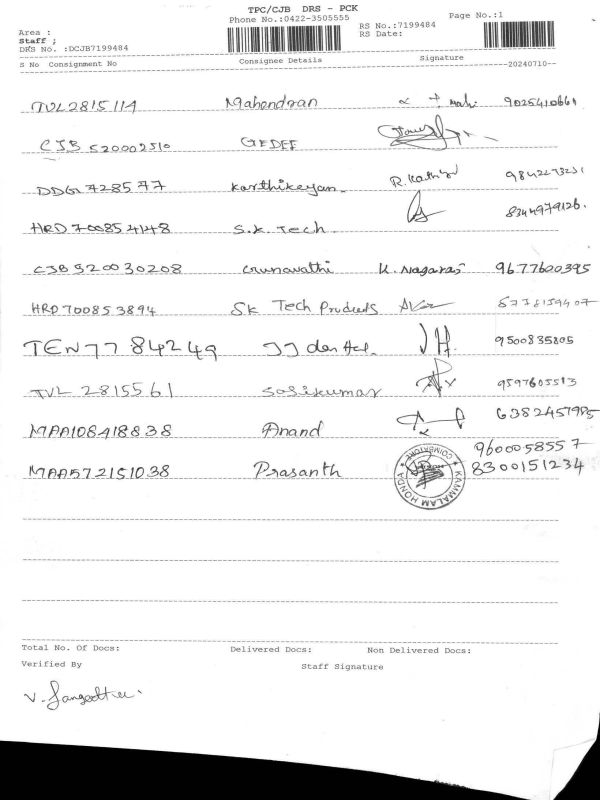 TPC/CJB DRS - PCK
Phone No.:0422-3505555 Page No.:1
Area : RS No.:7199484
Staff ; RS Date:
DRS No. :DCJB7199484
S No Consignment No Consignee Details Signature 20240710
TVL2815114 Mahendran 9025410661
CJB 520002510 GEDEE
DDG1728577 Karthikeyan
HRD700854148 S.K. Tech 8344979126
CJB520030208 K. Nagaraj 9677600395
HRD700853894 SK Tech Products
TEN7784249 JJ dental 9500835805
TVL 2815561 Sasikumar 9597605513
MAA108418838 Anand 6382457985
MAA572151038 Prasanth 9600058557
8300151234
KAMMALAM HONDA ★ COIMBATORE ★
Total No. Of Docs: Delivered Docs: Non Delivered Docs:
Verified By Staff Signature